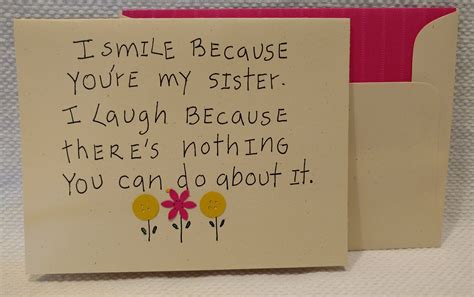 I SMILE BECAUSE
YOU'RE MY SISTER.
I LAUGH BECAUSE
THERE'S NOTHING
YOU CAN DO ABOUT IT.